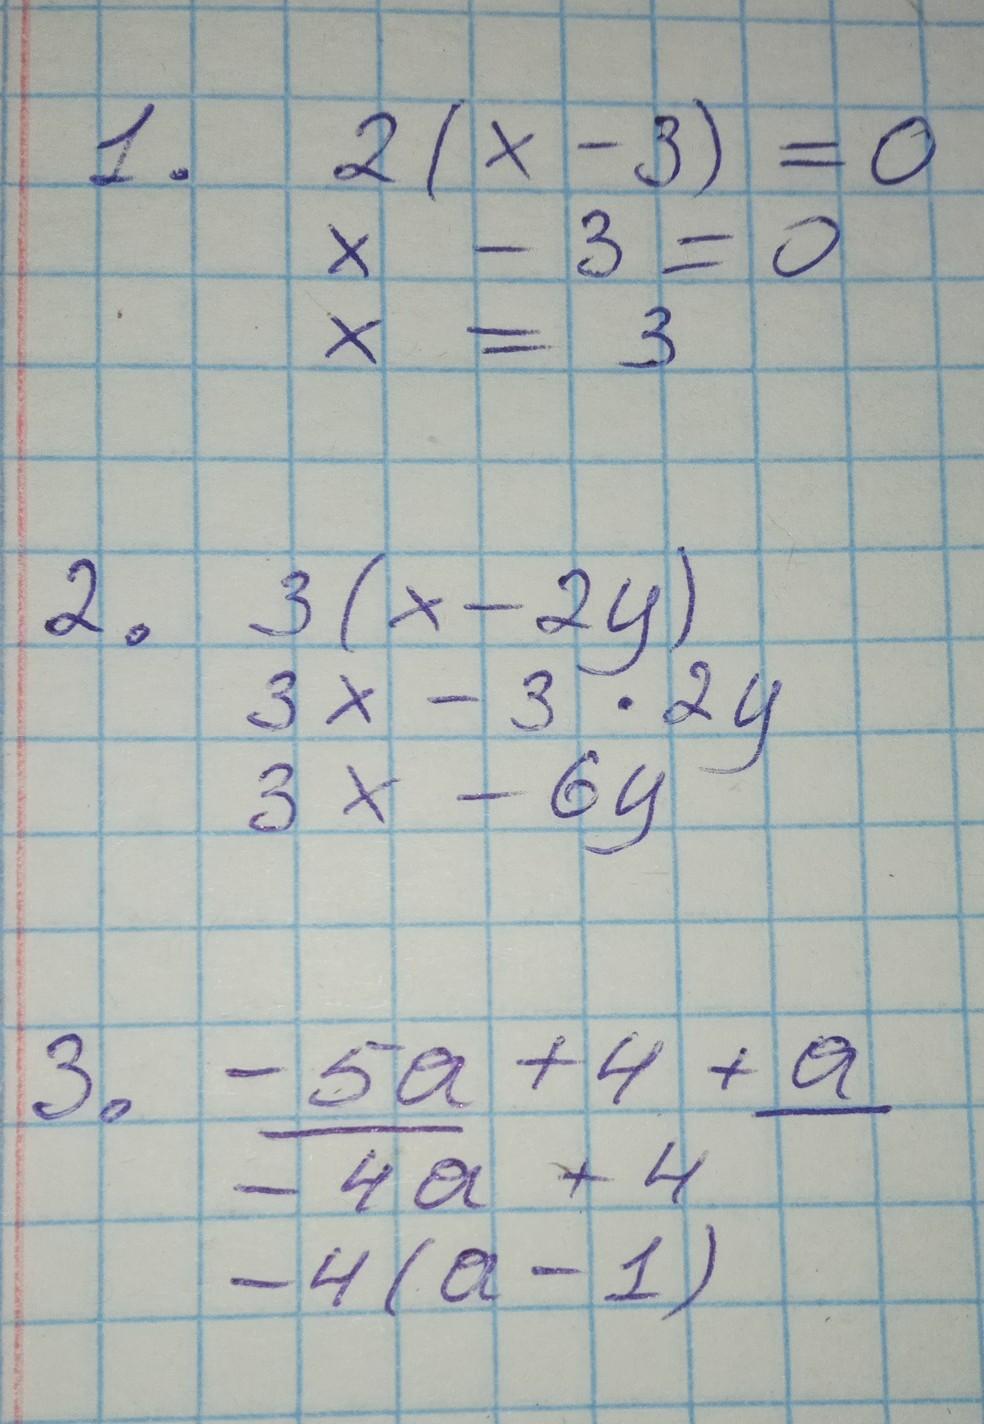 1. 2(x - 3) = 0
x - 3 = 0
x = 3
2. 3(x - 2y)
3x - 3 · 2y
3x - 6y
3. - 5a + 4 + a
- 4a + 4
- 4(a - 1)